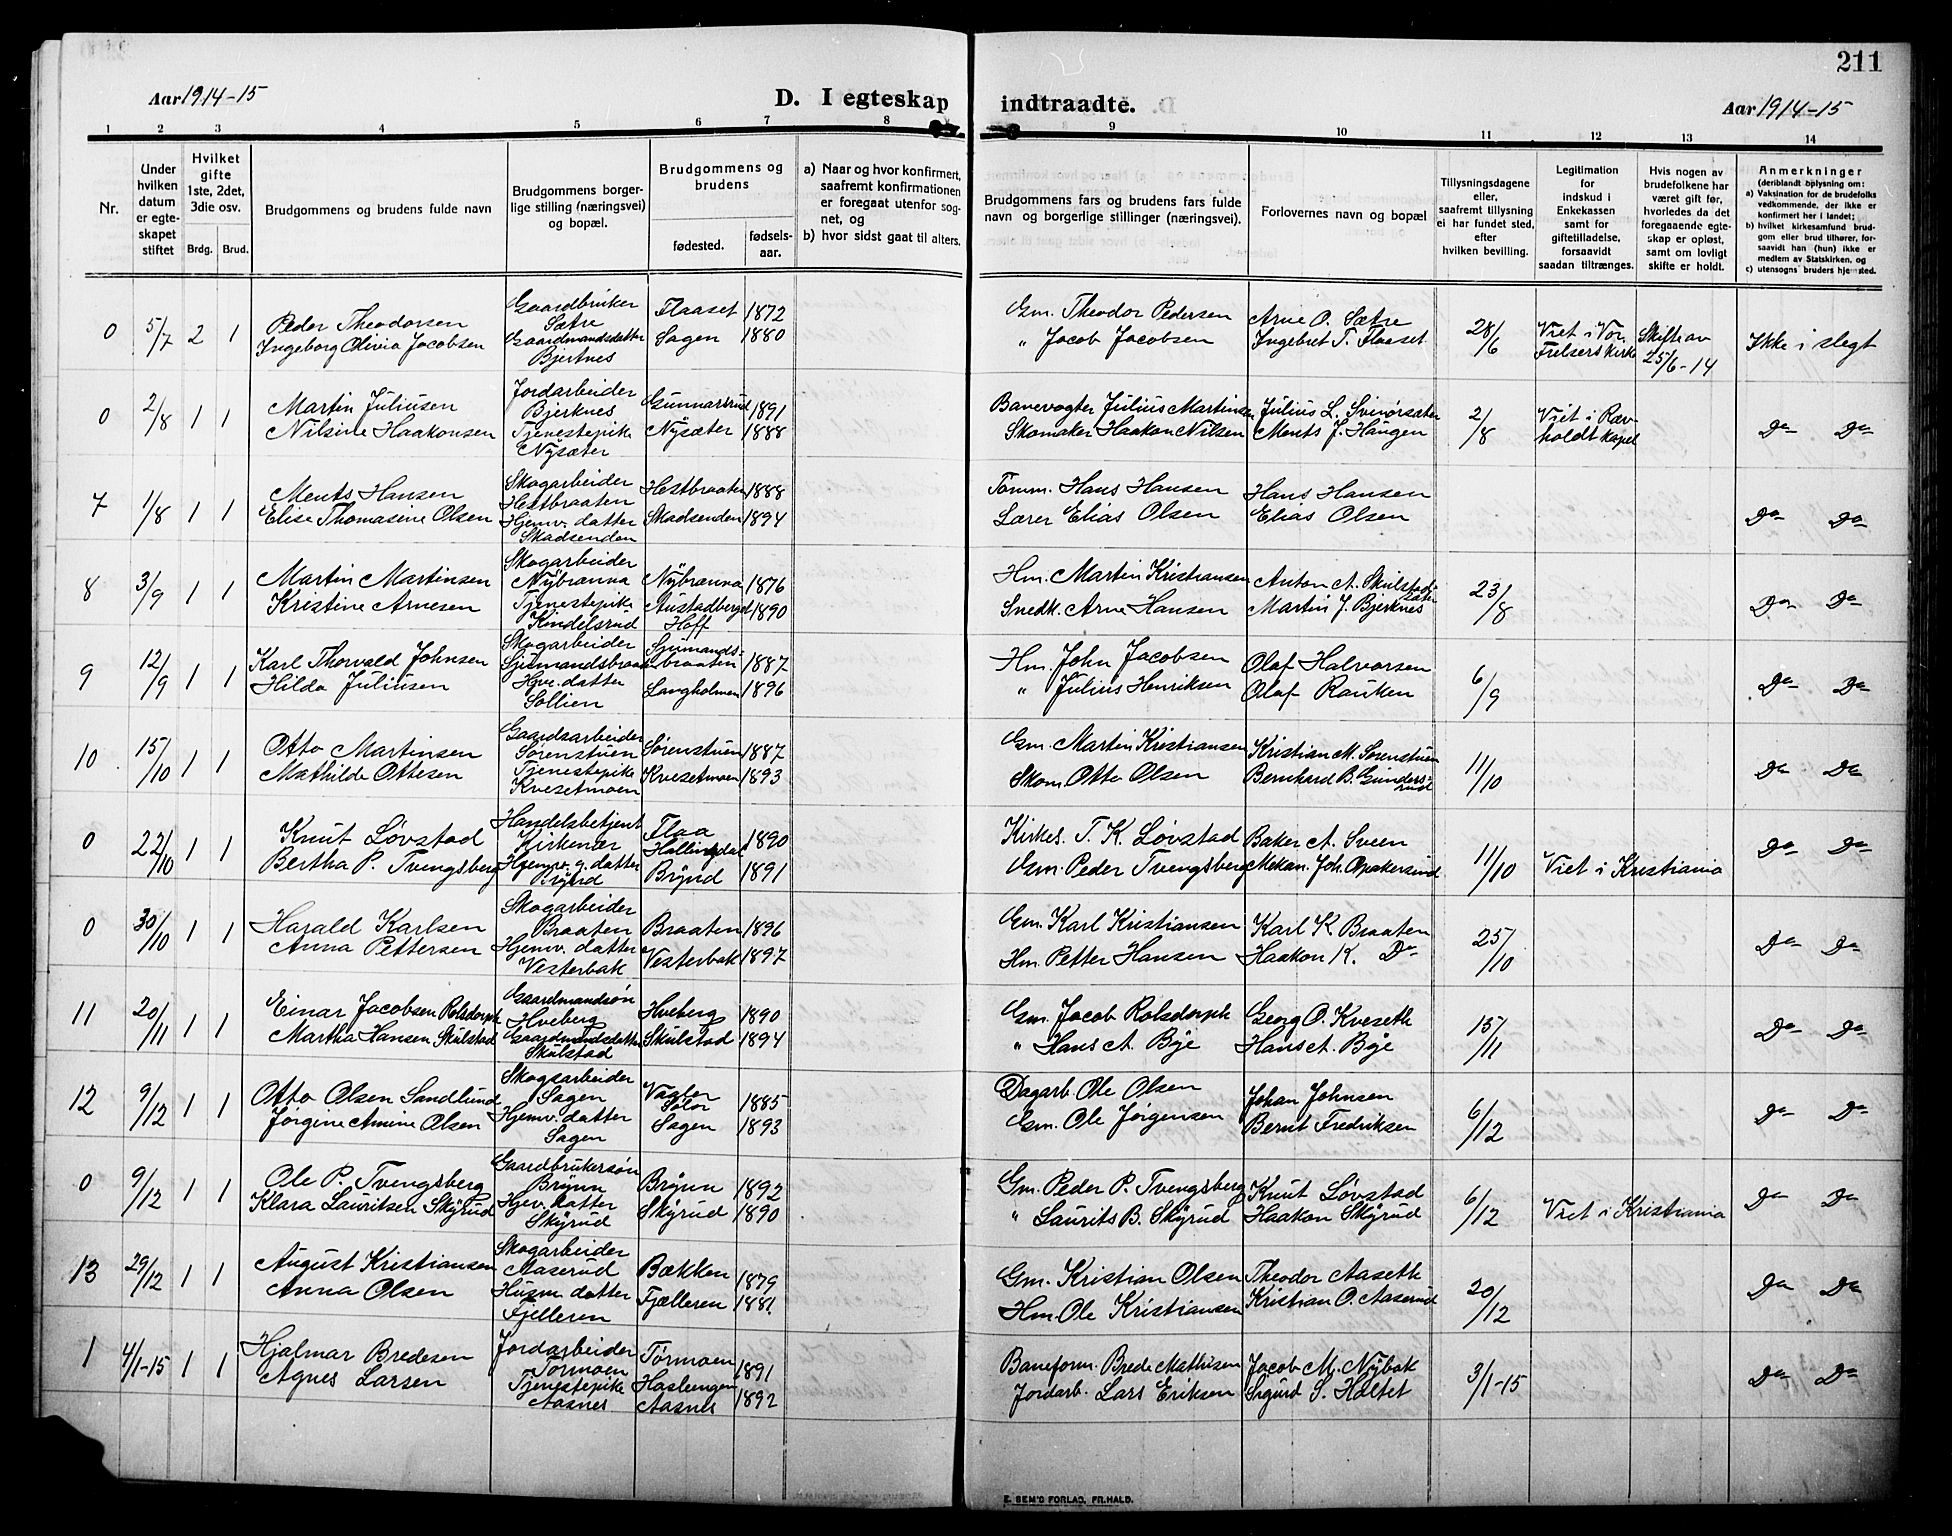 211
Aar 1914-15
D. I egteskap indtraadte.
Aar 1914-15
1 2 3 4 5 6 7 8 9 10 11 12 13 14
Nr.
Under hvilken datum er egteskapet stiftet
Hvilket gifte 1ste, 2det, 3die osv.
Brdg. Brud.
Brudgommens og brudens fulde navn
Brudgommens borgerlige stilling (næringsvei) og bopæl.
Brudgommens og brudens
fødested.
fødselsaar.
a) Naar og hvor konfirmert, saafremt konfirmationen er foregaat utenfor sognet, og
b) hvor sidst gaat til alters.
Brudgommens fars og brudens fars fulde navn og borgerlige stillinger (næringsvei).
Forlovernes navn og bopæl
Tillysningsdagene eller, saafremt tillysning ei har fundet sted, efter hvilken bevilling.
Legitimation for indskud i Enkekassen samt for giftetilladelse, forsaavidt saadan tiltrænges.
Hvis nogen av brudefolkene har været gift før, hvorledes da det foregaaende egteskap er opløst, samt om lovligt skifte er holdt.
Anmerkninger
(deriblandt oplysning om:
a) Vaksination for de brudefolks vedkommende, der ikke er konfirmert her i landet;
b) hvilket kirkesamfund brudgom eller brud tilhører, forsaavidt han (hun) ikke er medlem av Statskirken, og
c) utensogns bruders hjemsted.
0 5/7 2 1 Peder Theodorsen Gaardbruker Sætre Flaaset 1872 Gm. Theodor Pedersen Arne O. Sætre 28/6 Viet i Vor Frelsers kirke Skifte av 25/6-14 Ikke i slegt
Ingeborg Olivia Jacobsen Gaardmandsdatter Bjertnes Sagen 1880 " Jacob Jacobsen Ingebret T. Flaaset
0 2/8 1 1 Martin Juliusen Jordarbeider Bjerknes Gunnarsrud 1891 Banevogter Julius Martinsen Julius L. Svinörsæter 2/8 Viet i Rævholdt kapel Do Do
Nilsine Haakonsen Tjenestepike Nysæter Nysæter 1888 Skomaker Haakon Nilsen Ments J. Haugen
7 1/8 1 1 Ments Hansen Skogarbeider Hestbraaten Hestbraaten 1888 Tömm. Hans Hansen Hans Hansen Do Do
Elise Thomasine Olsen Hjemv. datter Skadsenden Skadsenden 1894 Lærer Elias Olsen Elias Olsen
8 3/9 1 1 Martin Martinsen Skogarbeider Nybrænna Nybrænna 1876 Hm. Martin Kristiansen Anton A. Skulstadsæter 23/8 Do Do
Kristine Arnesen Tjenestepike Kindelsrud Austadberget Hoff 1890 Snedk. Arne Hansen Martin J. Bjerknes
9 12/9 1 1 Karl Thorvald Johnsen Skogarbeider Sjumandsbraaten Sjumandsbraaten 1887 Hm. John Jacobsen Olaf Halvorsen 6/9 Do Do
Hilda Juliusen Hjv. datter Sollien Langholmen 1896 " Julius Henriksen Olaf Rauken
10 15/10 1 1 Otto Martinsen Gaardsarbeider Sørenstuen Sørenstuen 1887 Gm. Martin Kristiansen Kristian M. Sørenstuen 11/10 Do Do
Mathilde Ottesen Tjenestepike Kvesetmoen Kvesetmoen 1893 Skom. Otto Olsen Bernhard B. Gundersrud
0 22/10 1 1 Knut Løvstad Handelsbetjent Kirkenær Flaa Hallingdal 1890 Kirkes. T. K. Løvstad Baker A. Sveen 11/10 Viet i Kristiania Do Do
Bertha P. Tvengsberg Hjemv. g. datter Brynd Brynd 1891 Gm. Peder Tvengsberg Mekan. Joh. Opakersund
0 30/10 1 1 Harald Karlsen Skogarbeider Braaten Braaten 1896 Gm. Karl Kristiansen Karl K. Braaten 25/10 Do Do
Anna Pettersen Hjemv. datter Vesterbak Vesterbak 1897 Hm. Petter Hansen Haakon K. Do
11 20/11 1 1 Einar Jacobsen Rolsdorph Gaardmandsøn Hveberg Hveberg 1890 Gm. Jacob Rolsdorph Georg O. Kveseth 15/11 Do Do
Martha Hansen Skulstad Gaardmandsdatter Skulstad Skulstad 1894 " Hans A. Bye Hans A. Bye
12 9/12 1 1 Otto Olsen Sandlund Skogsarbeider Sagen Vaaler Solør 1885 Dagarb. Ole Olsen Johan Johnsen 6/12 Do Do
Jørgine Amine Olsen Hjemv. datter Sagen Sagen 1893 Gm. Ole Jørgensen Bernt Fredriksen
0 9/12 1 1 Ole P. Tvengsberg Gaardbrukersøn Brynn Brynn 1892 Gm. Peder P. Tvengsberg Knut Løvstad 6/12 Viet i Kristiania Do Do
Klara Lauritsen Skyrud Hjev. datter Skyrud Skyrud 1890 " Laurits B. Skyrud Haakon Skyrud
13 29/12 1 1 August Kristiansen Skogarbeider Aaserud Bækken 1879 Gm. Kristian Olsen Theodor Aaseth 20/12 Do Do
Anna Olsen Husm. datter Fjelleren Fjælleren 1881 Hm. Ole Kristiansen Kristian O. Aaserud
1 4/1-15 1 1 Hjalmar Bredesen Jordarbeider Tørmoen Tørmoen 1891 Baneform. Brede Mathisen Jacob M. Nybak 3/1-15 Do Do
Agnes Larsen Tjenestepike Aasnes Haslengen Aasnes 1892 Jordarb. Lars Eriksen Sigurd S. Holtet
E. SEM'S FORLAG, FR.HALD.